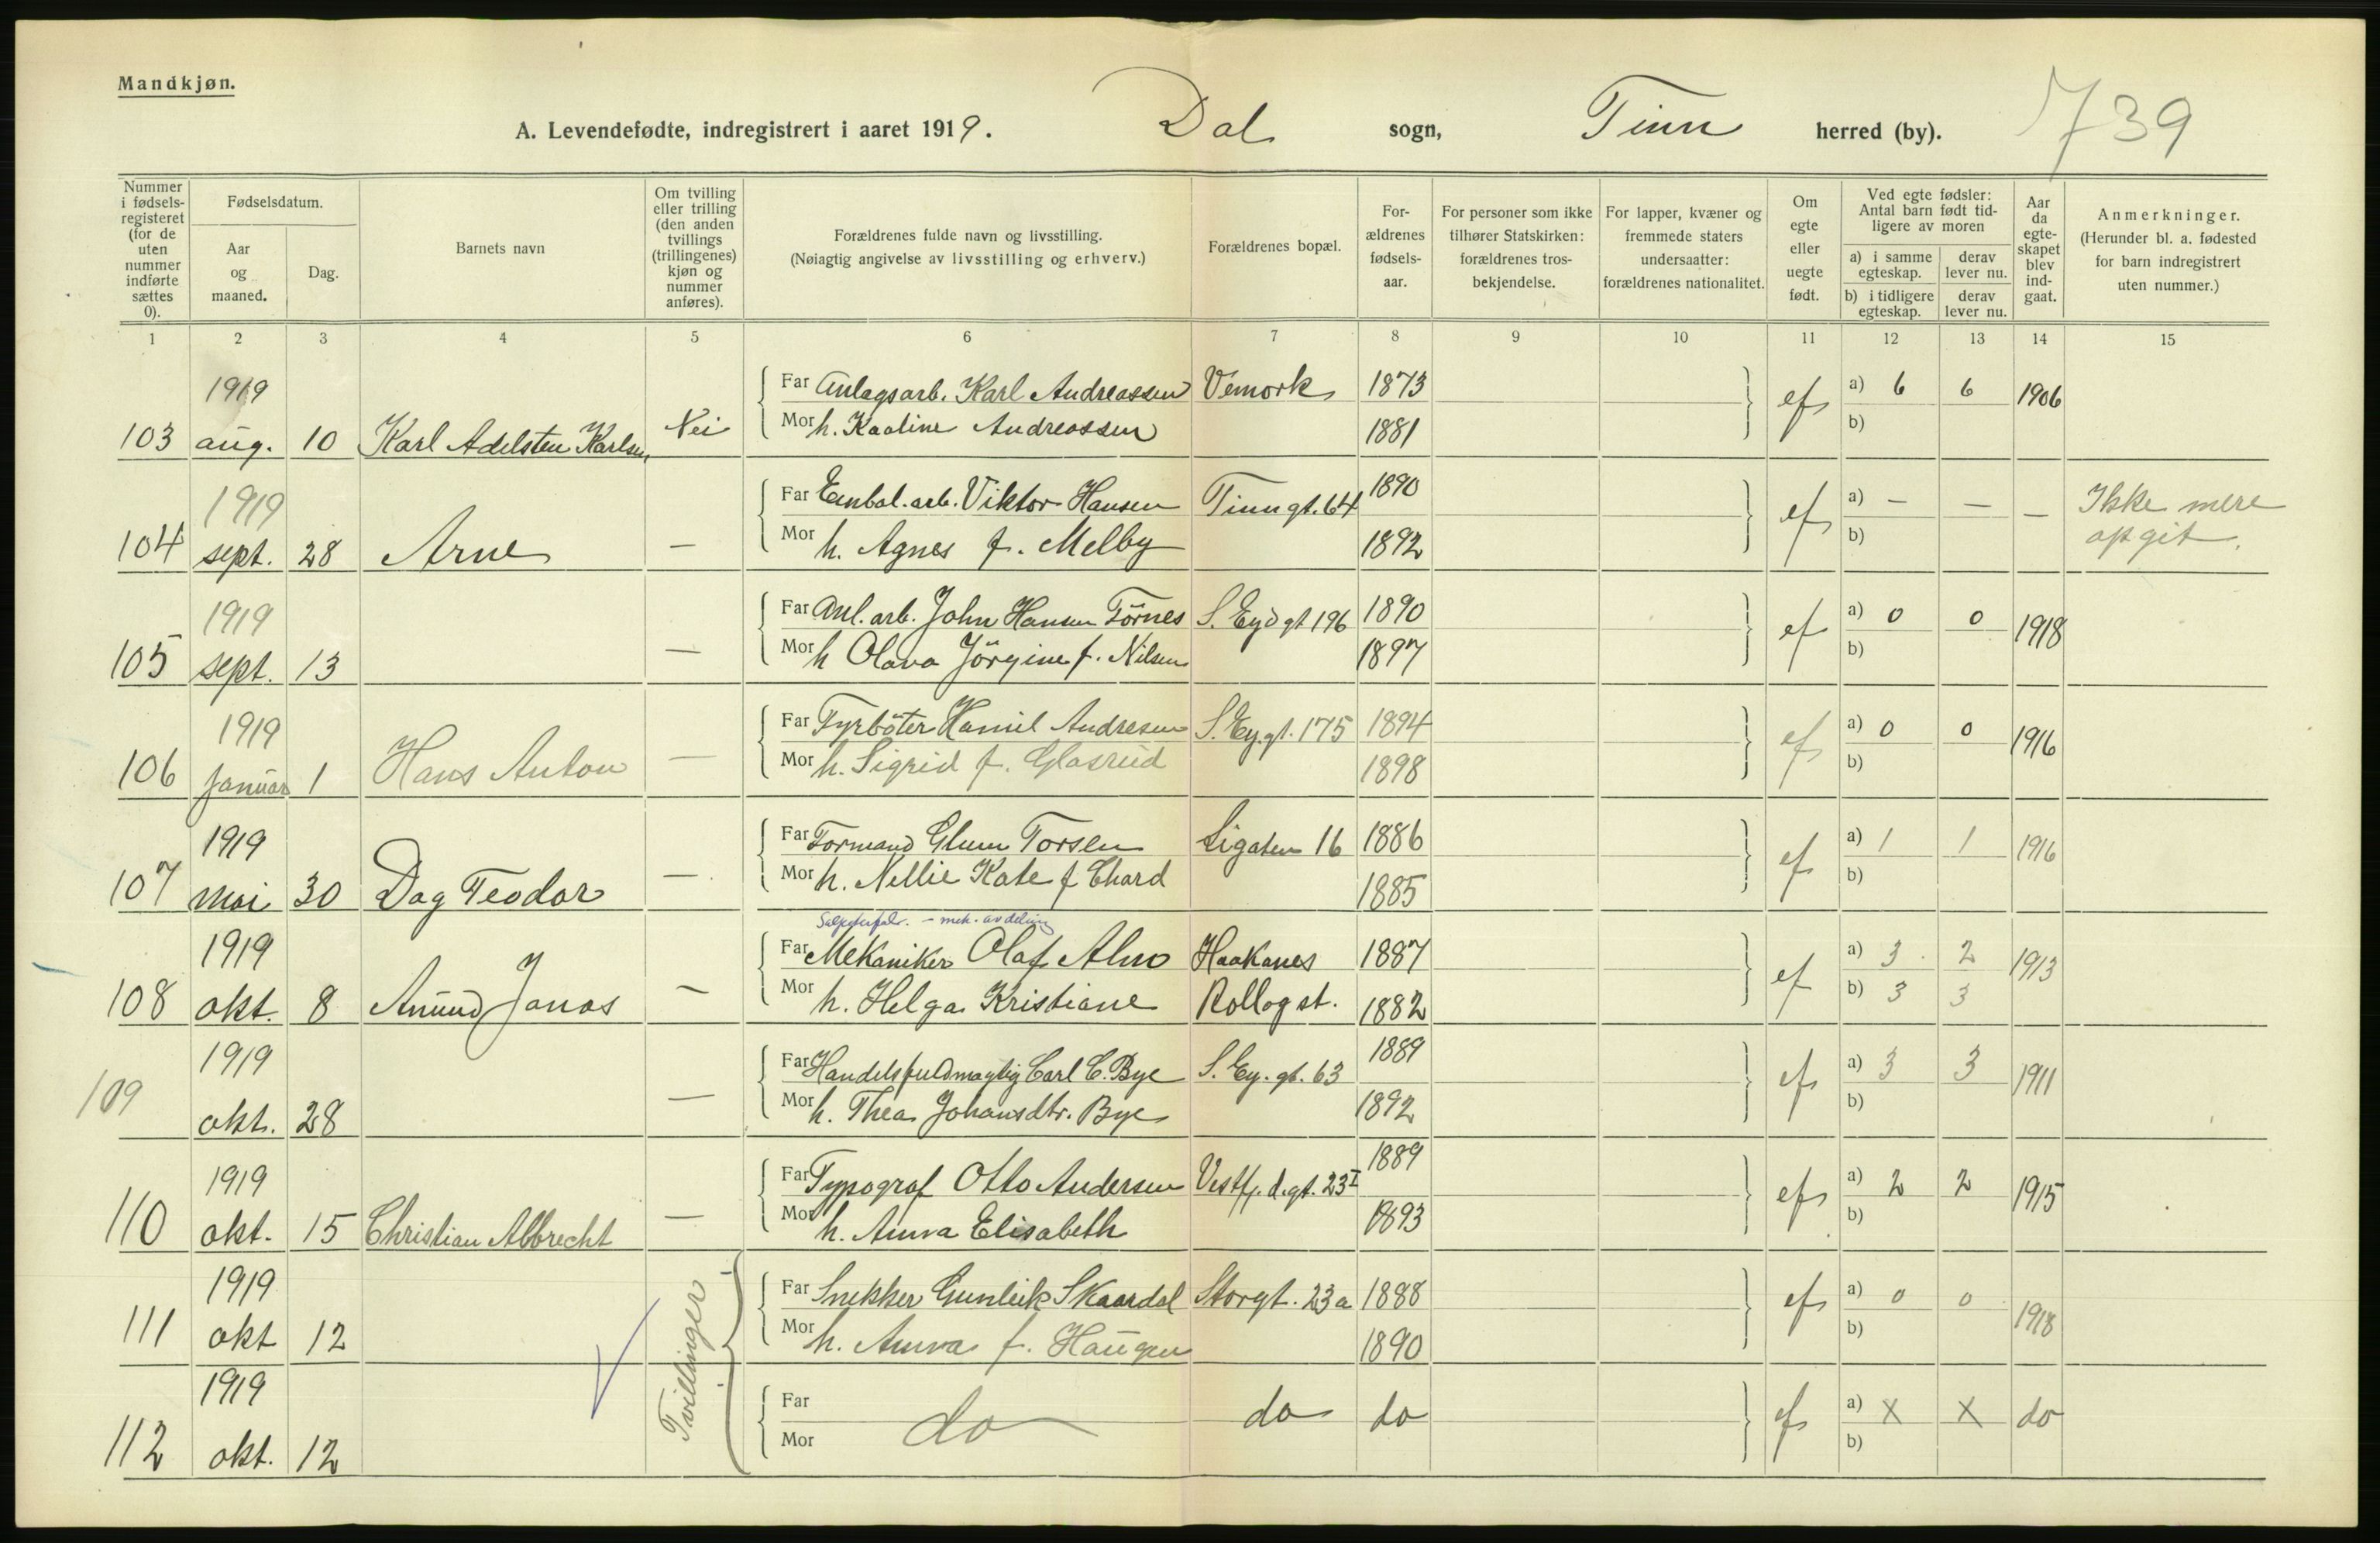 Mandkjøn.
A. Levendefødte, indregistrert i aaret 1919. Dal sogn, Tinn herred (by). 739
Nummer i fødsels-registeret (for de uten nummer indførte sættes 0).
Fødselsdatum.
Aar og maaned.
Dag.
Barnets navn
Om tvilling eller trilling (den anden tvillings (trillingenes) kjøn og nummer anføres).
Forældrenes fulde navn og livsstilling.
(Nøiagtig angivelse av livsstilling og erhverv.)
Forældrenes bopæl.
For-ældrenes fødsels-aar.
For personer som ikke tilhører Statskirken: forældrenes tros-bekjendelse.
For lapper, kvæner og fremmede staters undersaatter: forældrenes nationalitet.
Om egte eller uegte født.
Ved egte fødsler: Antal barn født tid-ligere av moren
a) i samme egteskap.
derav lever nu.
b) i tidligere egteskap.
derav lever nu.
Aar da egte-skapet blev ind-gaat.
Anmerkninger.
(Herunder bl. a. fødested for barn indregistrert uten nummer.)
1 2 3 4 5 6 7 8 9 10 11 12 13 14 15
1919 Far Anlagsarb. Karl Andreassen Vemork 1873 ef a) 6 6 1906
103 aug. 10 Karl Adelsten Karlsen Nei Mor h. Kaoline Andreassen 1881 b)
1919 Far Embal. arb. Viktor Hansen Tinngt. 64 1890 ef a) — — — Ikke mere
104 sept. 28 Arne — Mor h. Agnes f. Melby 1892 b) opgit.
1919 Far Anl. arb. John Hansen Törnes S. Eyd gt 196 1890 ef a) 0 0 1918
105 sept. 13 — Mor h Olava Jörgine f. Nilsen 1897 b)
1919 Far Fyrböter Hamil Andresen S. Ey. gt. 175 1894 ef a) 0 0 1916
106 Januar 1 Hans Anton — Mor h. Sigrid f. Glasrud 1898 b)
1919 Far Formand Glum Torsen Ligaten 16 1886 ef a) 1 1 1916
107 mai 30 Dag Teodor — Mor h. Nellie Kate f Chard 1885 b)
Salpeterfabr. - mek. avdeling
1919 Far Mekaniker Olaf Almo Haakanes 1887 ef a) 3 2 1913
108 okt. 8 Amund Jonas — Mor h. Helga Kristiane Rollag st. 1882 b) 3 3
1919 Far Handelsfuldmagtig Carl C. Bye S. Ey. gt. 63 1889 ef a) 3 3 1911
109 okt. 28 — Mor h. Thea Johansdtr. Bye 1892 b)
1919 Far Typograf Otto Andersen Vestfj. d. gt. 23 I 1889 ef a) 2 2 1915
110 okt. 15 Christian Albrecht — Mor h. Anna Elisabeth 1893 b)
1919 Tvillinger Far Snekker Gunleik Skaardal Storgt. 23a 1888 ef a) 0 0 1918
111 okt 12 Mor h. Anna f. Haugen 1890 b)
1919 Far do do do ef a) X X do
112 okt. 12 Mor b)